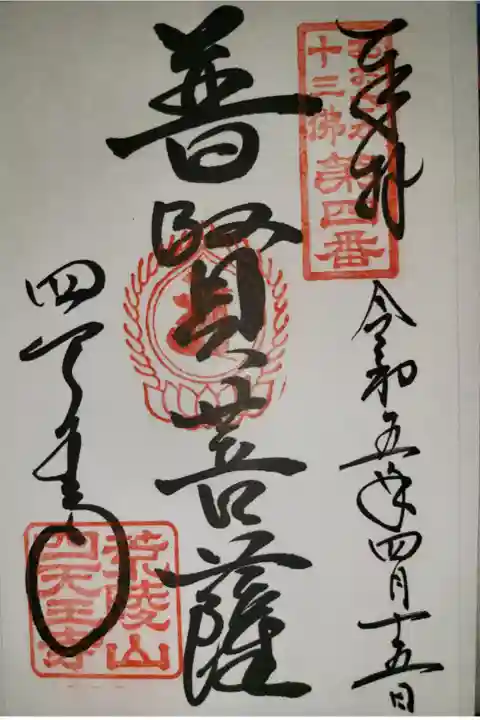 奉拝
十三佛第四番
令和五年四月十五日
普賢菩薩
四天王寺
荒陵山
四天王寺